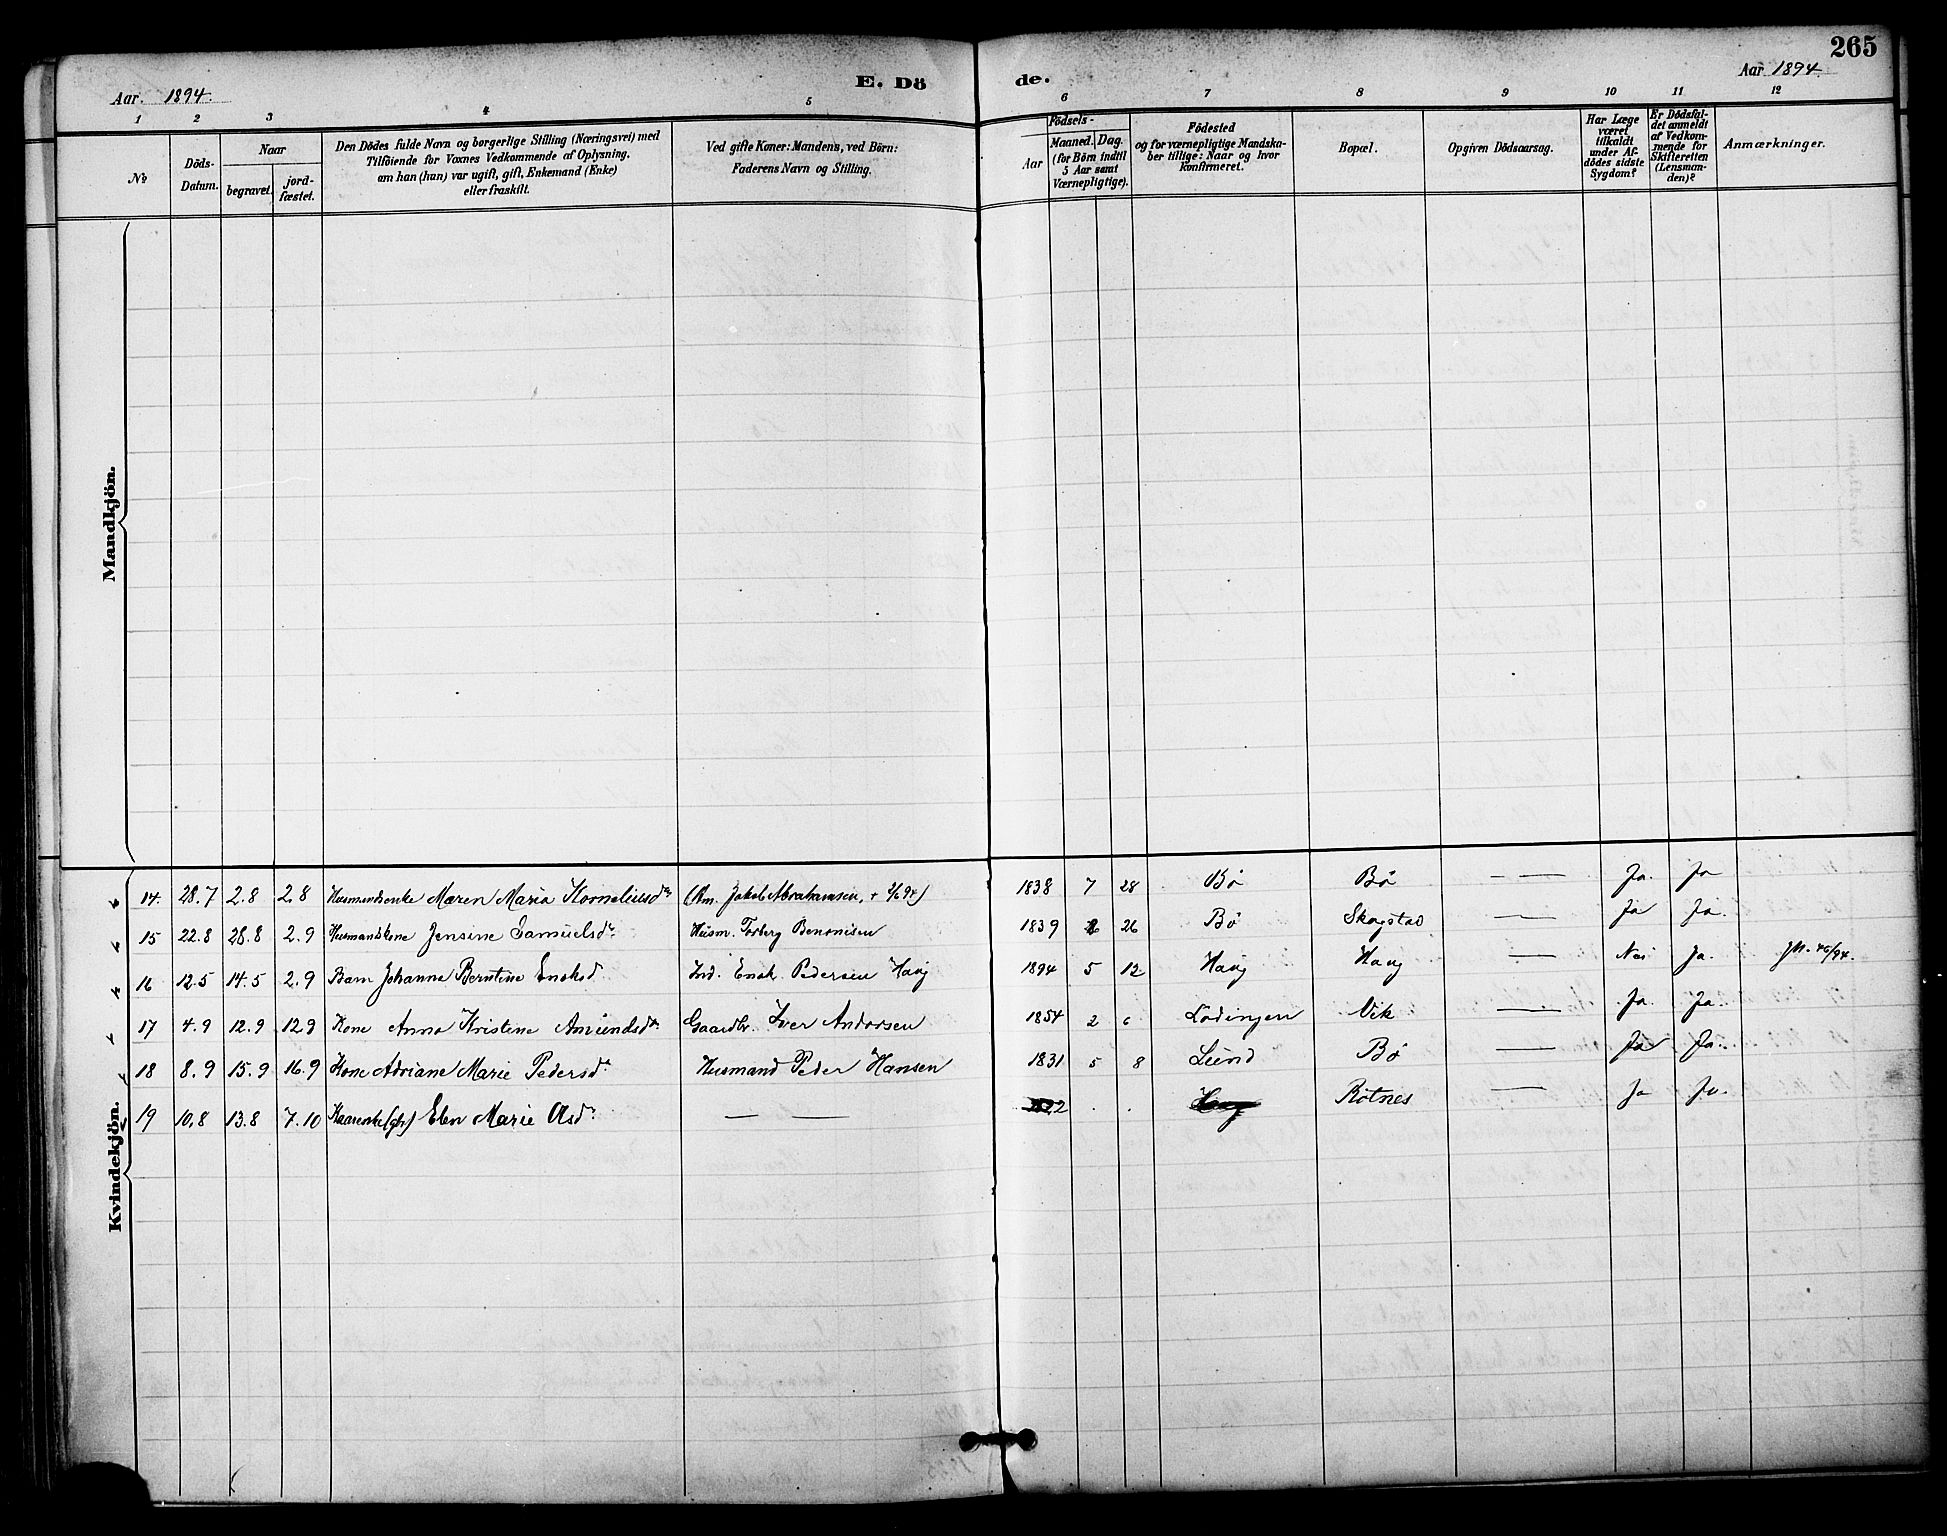 265
E. Dö
de.
Aar. 1894.
Aar 1894.
1 2 3 4 5 6 7 8 9 10 11 12
№
Döds-Datum.
Naar
begravet.
jord-fæstet.
Den Dödes fulde Navn og borgerlige Stilling (Næringsvei) med
Tilföiende for Voxnes Vedkommende af Oplysning,
om han (hun) var ugift, gift, Enkemand (Enke)
eller fraskilt.
Ved gifte Koner: Mandens, ved Börn:
Faderens Navn og Stilling.
Födsels-
Aar
Maaned. Dag.
(for Börn indtil
5 Aar samt
Værnepligtige).
Födested
og for værnepligtige Mandska-
ber tillige: Naar og hvor
konfirmeret.
Bopæl.
Opgiven Dödsaarsag.
Har Læge
været
tilkaldt
under Af-
dödes sidste
Sygdom?
Er Dödsfal-
det anmeldt
af Vedkom-
mende for
Skifteretten
(Lensman-
den)?
Anmærkninger.
Mandkjön.
Kvindekjön.
14. 28.7 2.8 2.8 Husmandsenke Maren Maria Korneliusdtr (Hm. Jakob Abrahamsen, + 2/6 94) 1838 7 28 Bø Bø — — Ja. Ja
15 22.8 28.8 2.9 Husmandskone Jensine Samuelsdr. Husm. Torberg Benonisen 1839 26 Bø Skogstad — Ja Ja.
16 12.5 14.5 2.9 Barn Johanna Berntine Enoksd. Ind. Enok Pedersen Haug 1894 5 12 Haug Haug — Nei Ja.
17 4.9 12.9 12.9 Kone Anna Kristine Amundsdr. Gaardbr. Iver Andorsen 1854 2 6 Lødingen Vik — Ja. Ja.
18 8.9 15.9 16.9 Kone Adriane Marie Pedersdr. Husmand Peder Hansen 1831 5 8 Lund Bø — Ja Ja.
19 10.8 13.8 7.10 Elen Marie Olsdr. — — . . Rotnes — Ja Ja.